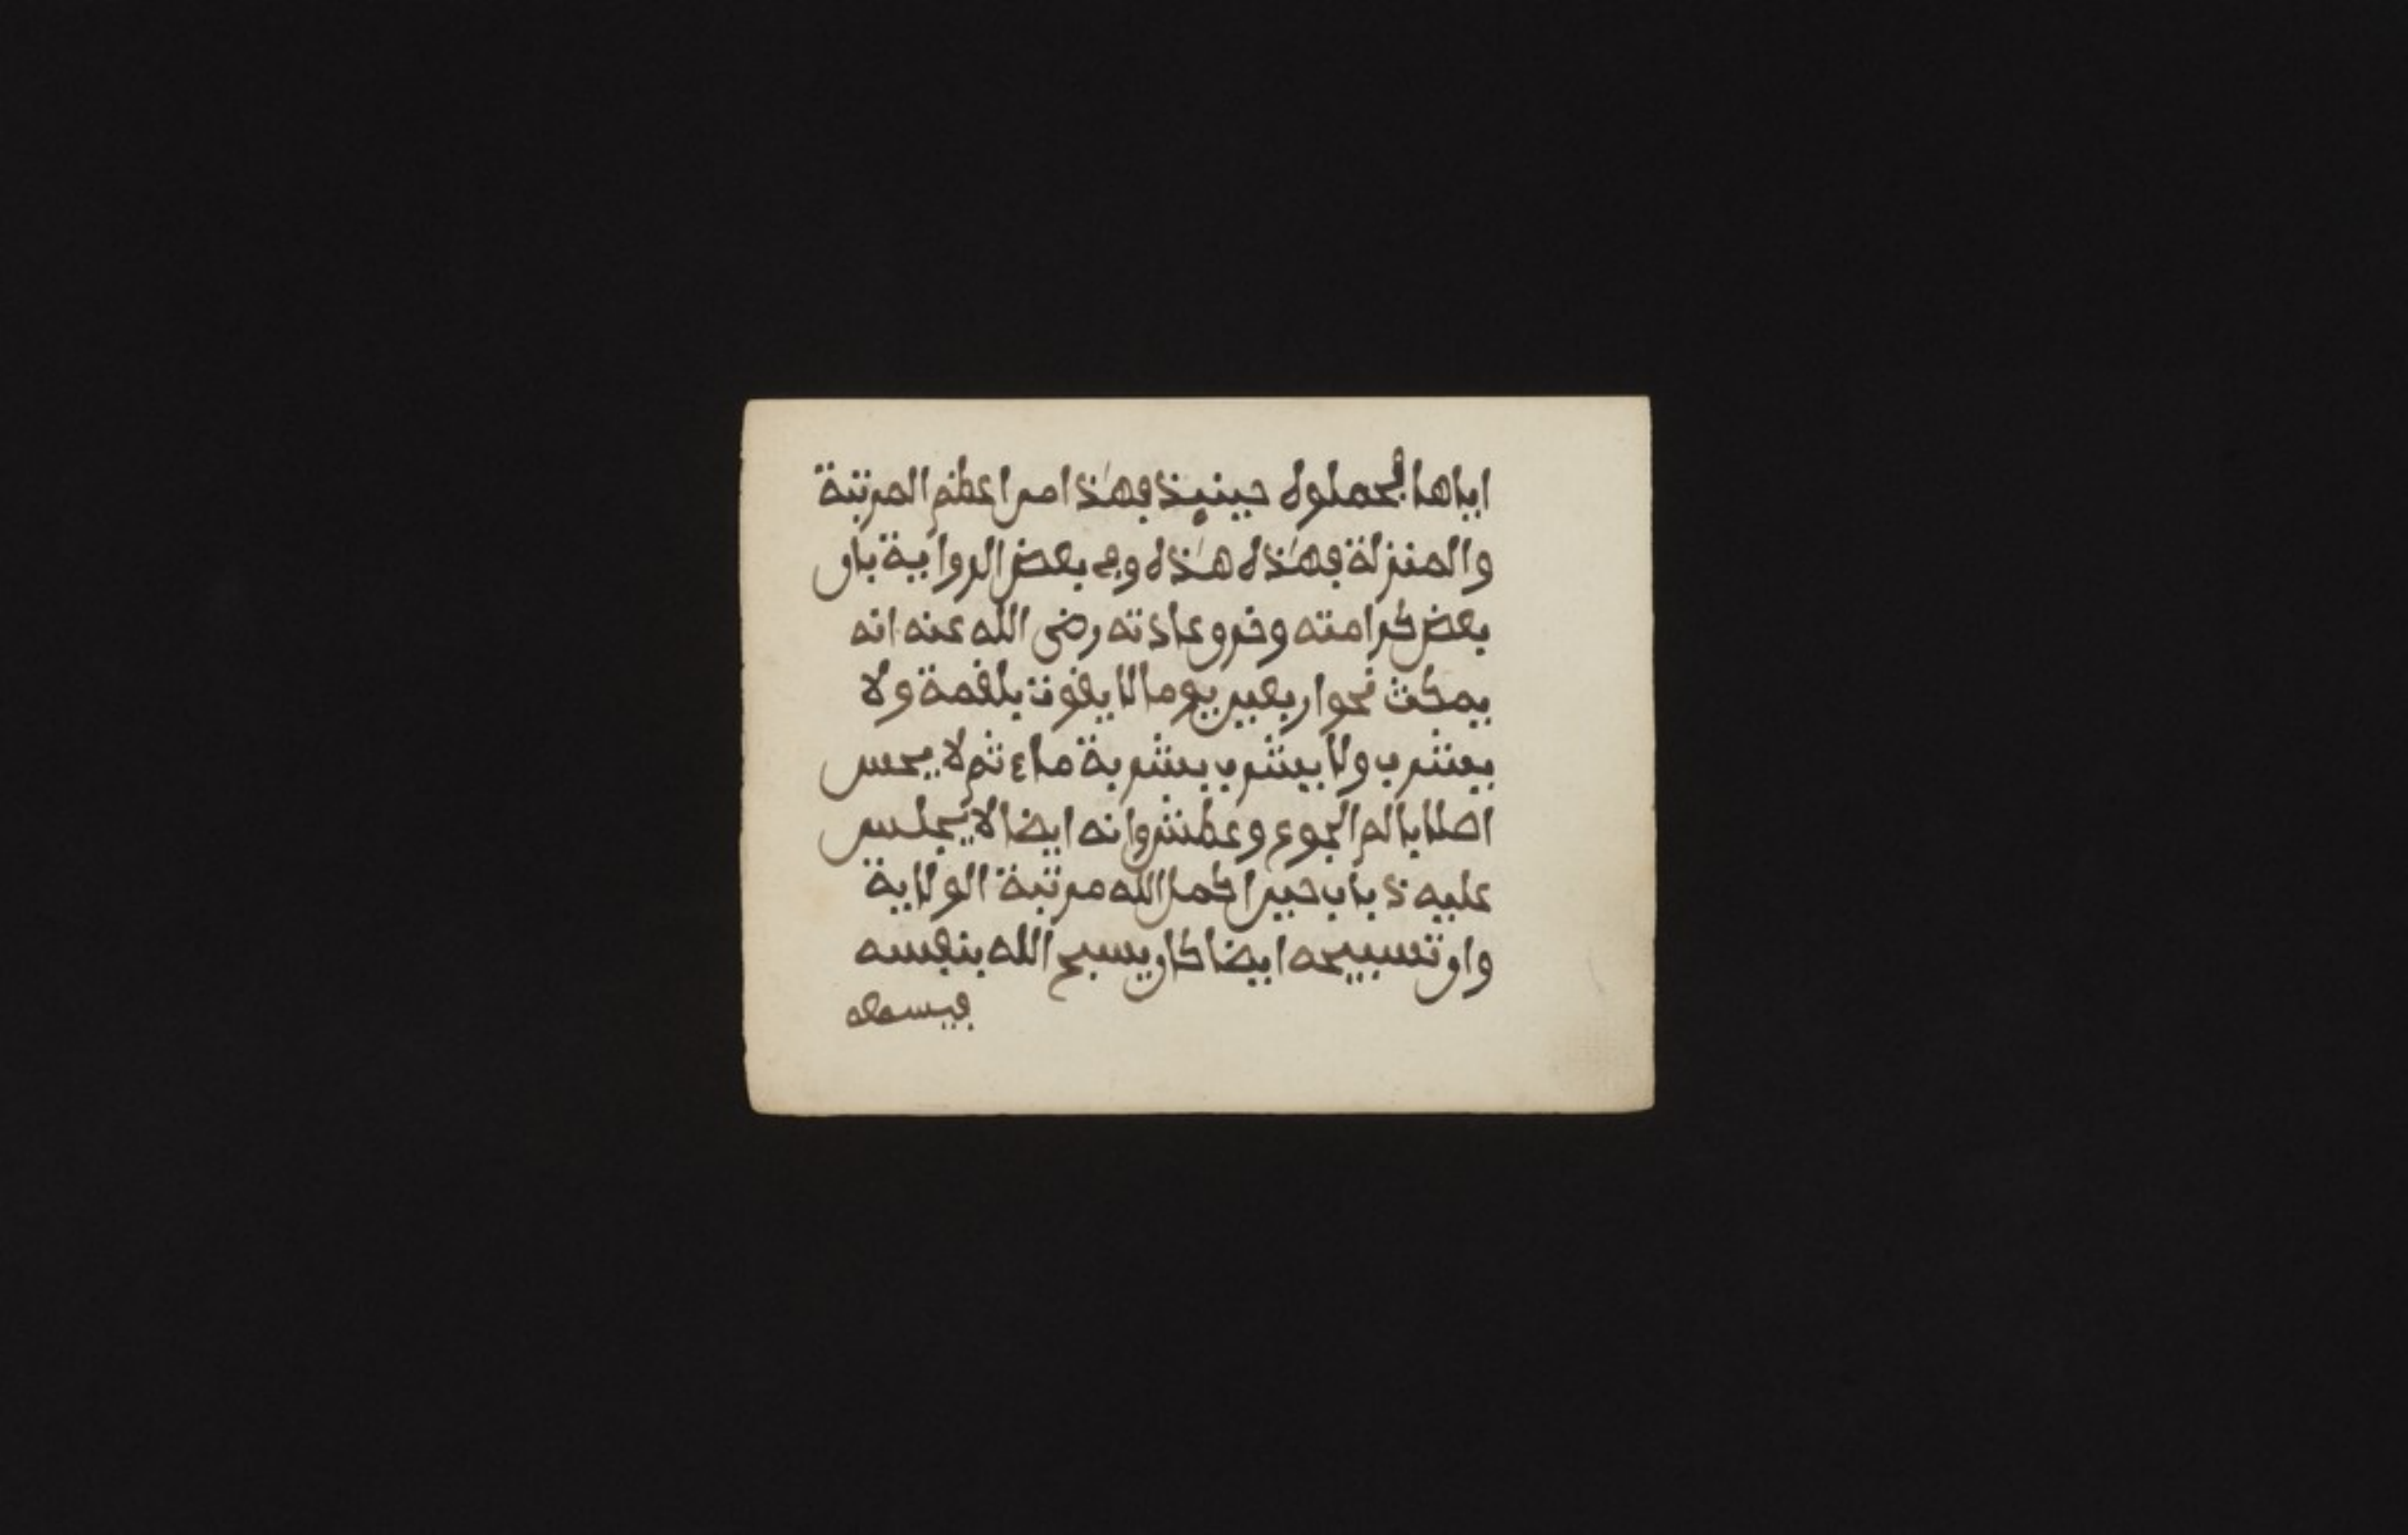 اياها المحملوله حينيذ فهذا امر اعظم المرتبة
والمنزلة فهذه هذه وفي بعض الرواية بان
بعض كرامته وخرو عادته رضى الله عنه انه
يمكث نحوا ربعين يوما لا يقوت بلقمة ولا
يعشرب ولا يشرب بشربة ماء ثم لا يحس
اصلا بالم الجوع وعطش وانه ايضا لا يجلس
عليه ذباب حين اكمل الله مرتبة الولاية
وان تسبيحه ايضا كان يسبح الله بنفسه
فيسمعه